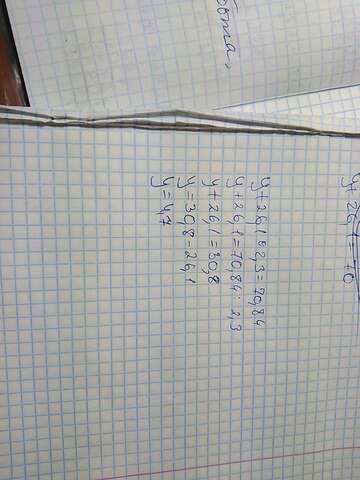 y+26,1=70
y+26,1·2,3=70,84
y+26,1=70,84:2,3
y+26,1=30,8
y=30,8-26,1
y=4,7